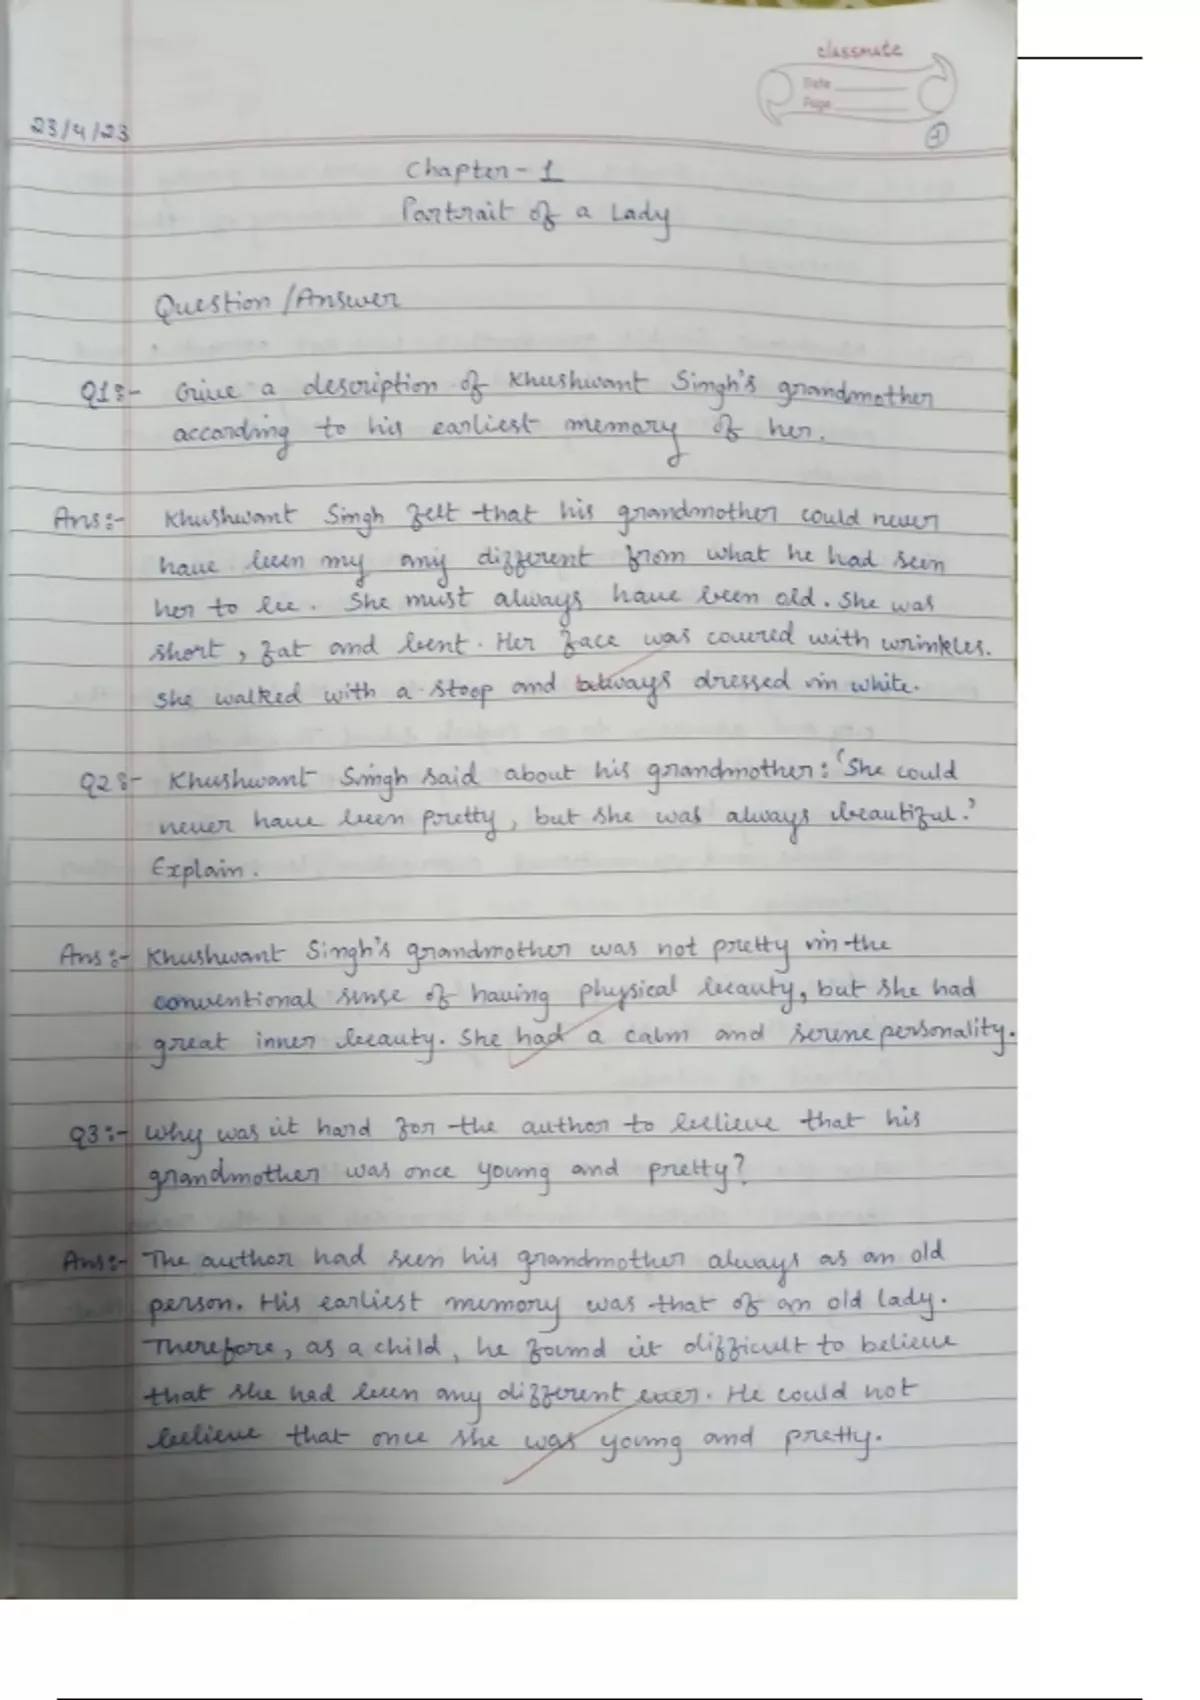 classmate
Date
Page
1
23/4/23
Chapter-1
Partrait of a Lady
Question/Answer
Q1:- Give a description of Khushwant Singh's grandmother
according to his earliest memory of her.
Ans:- Khushwant Singh felt that his grandmother could never
have been my any different from what he had seen
her to be. She must always have been old. She was
short, fat and bent. Her face was covered with wrinkles.
She walked with a stoop and always dressed in white.
Q2:- Khushwant Singh said about his grandmother: 'She could
never have been pretty, but she was always beautiful.'
Explain.
Ans:- Khushwant Singh's grandmother was not pretty in the
conventional sense of having physical beauty, but she had
great inner beauty. She had a calm and serene personality.
Q3:- Why was it hard for the author to believe that his
grandmother was once young and pretty?
Ans:- The author had seen his grandmother always as an old
person. His earliest memory was that of an old lady.
Therefore, as a child, he found it difficult to believe
that she had been any different ever. He could not
believe that once she was young and pretty.